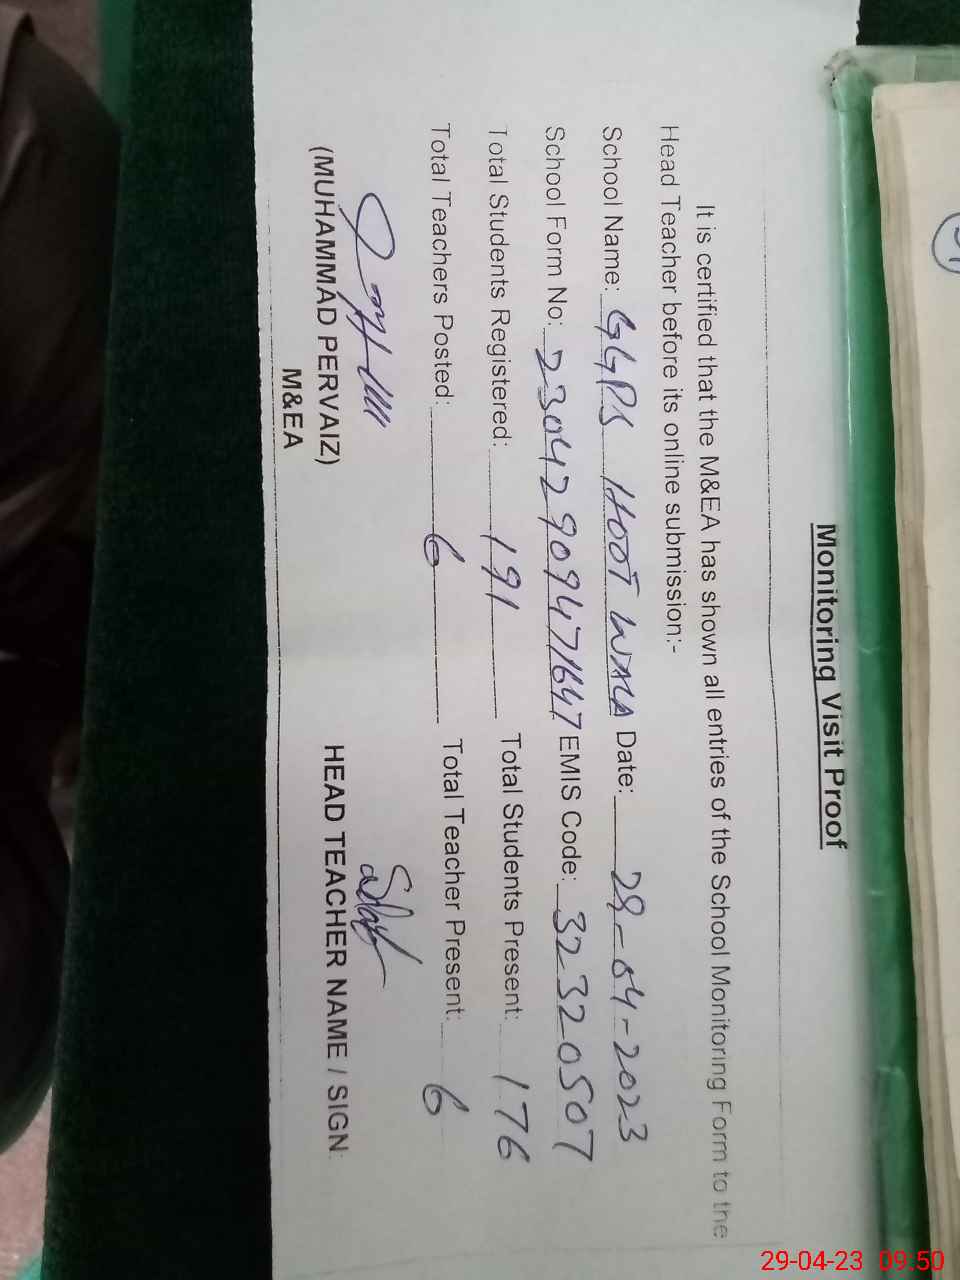 Monitoring Visit Proof
It is certified that the M&EA has shown all entries of the School Monitoring Form to the
Head Teacher before its online submission:-
School Name: GGPS HOOT WALA Date: 29-04-2023
School Form No: 23042909471647 EMIS Code: 32320507
Total Students Registered: 191 Total Students Present: 176
Total Teachers Posted: 6 Total Teacher Present: 6
(MUHAMMAD PERVAIZ) HEAD TEACHER NAME / SIGN
M&EA
29-04-23 09.50